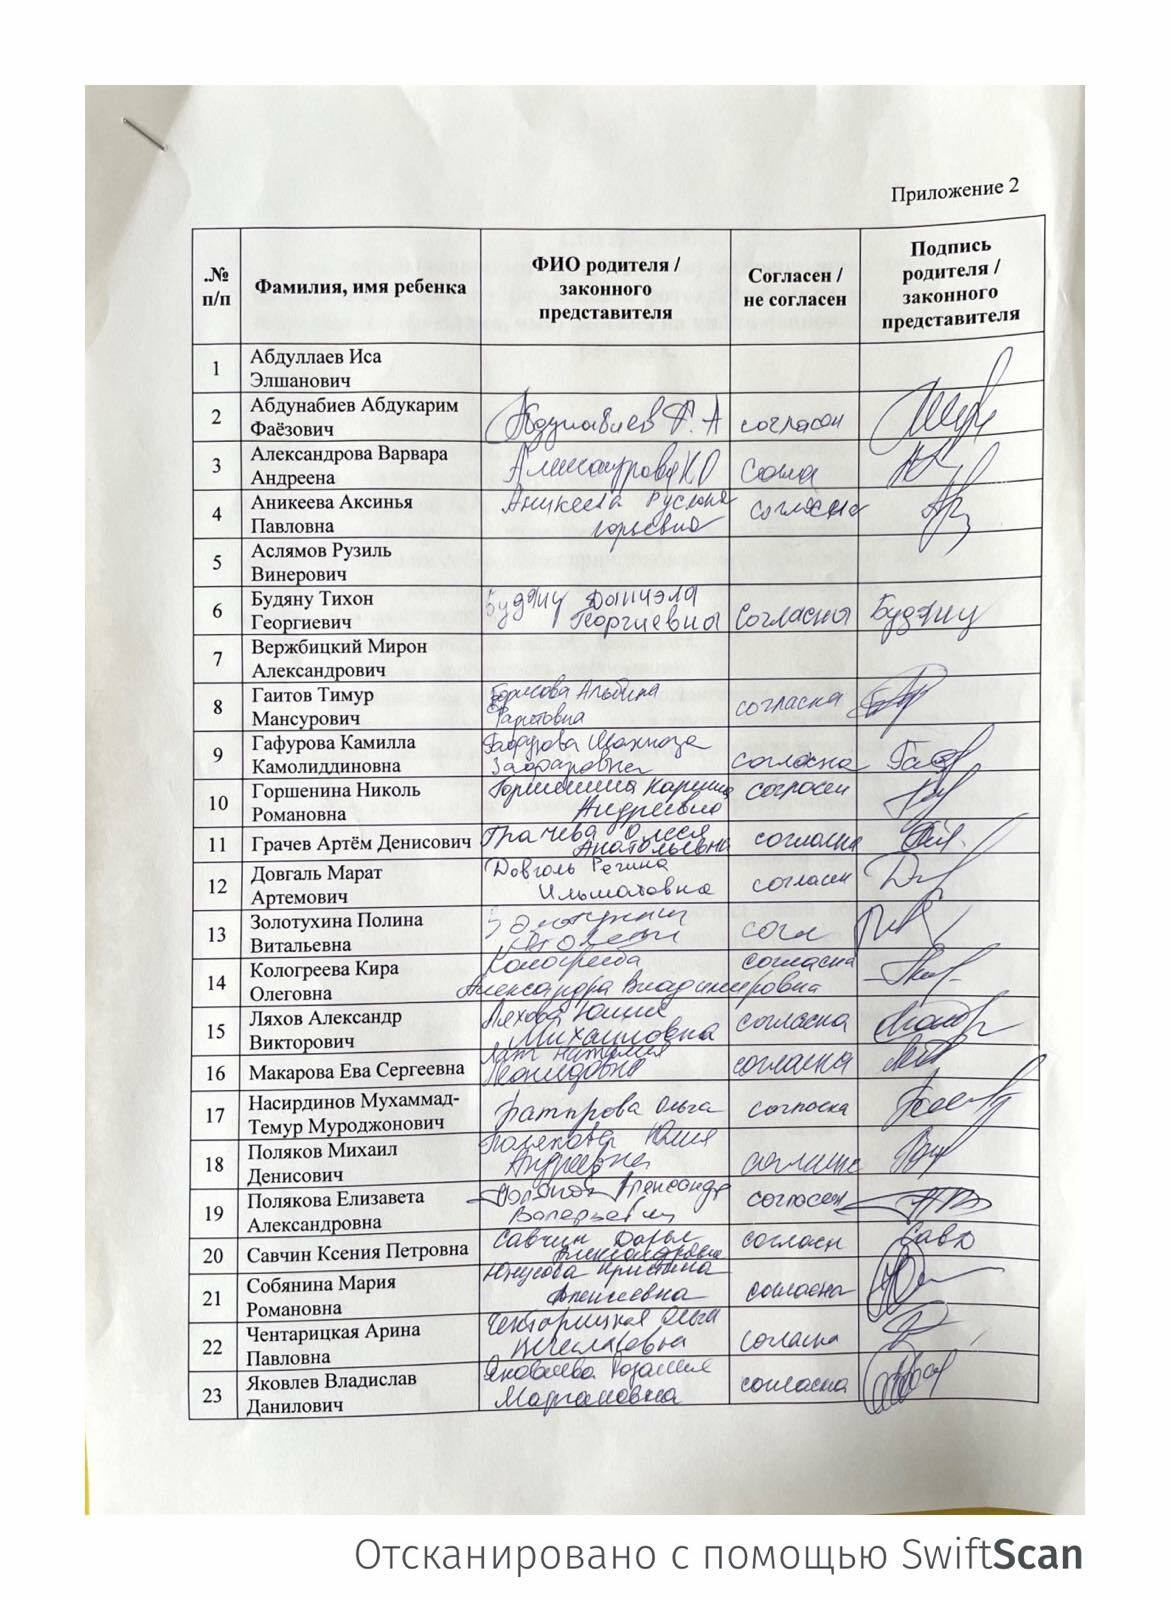 Приложение 2
.№ п/п
Фамилия, имя ребенка
ФИО родителя / законного представителя
Согласен / не согласен
Подпись родителя / законного представителя
1
Абдуллаев Иса
Элшанович
2
Абдунабиев Абдукарим
Фаёзович
Абдунабиев Ф. А
согласен
3
Александрова Варвара
Андреена
Александрова К О
4
Аникеева Аксинья
Павловна
Аникеева
согласна
5
Аслямов Рузиль
Винерович
6
Будяну Тихон
Георгиевич
Будяну Даниэла
Георгиевны
Согласны
Будяну
7
Вержбицкий Мирон
Александрович
8
Гаитов Тимур
Мансурович
Борисова Альбина
согласна
9
Гафурова Камилла
Камолиддиновна
Гафурова Шахноза
Зафаровна
согласна
10
Горшенина Николь
Романовна
Горшенина Карина
Андреевна
согласен
11
Грачев Артём Денисович
Грачева Олеся
Анатольевна
согласна
12
Довгаль Марат
Артемович
Довголь Регина
Ильматовна
согласен
13
Золотухина Полина
Витальевна
согл
14
Кологреева Кира
Олеговна
Кологреева
Александра Владимировна
согласна
15
Ляхов Александр
Викторович
Ляхова Юлия
Михайловна
согласна
16
Макарова Ева Сергеевна
Наталия
Леонидовна
согласна
17
Насирдинов Мухаммад-
Темур Муроджонович
Ольга
согласна
18
Поляков Михаил
Денисович
Полякова Юлия
Андреевна
согласна
19
Полякова Елизавета
Александровна
Поляков Александр
Валерьевич
согласен
20
Савчин Ксения Петровна
Савчин Дарья
Александровна
согласн
Савд
21
Собянина Мария
Романовна
Юнусова Кристина
Алексеевна
согласна
22
Чентарицкая Арина
Павловна
Чентарицкая Ольга
согласна
23
Яковлев Владислав
Данилович
Яковлева Розалия
Маргановна
согласна
Отсканировано с помощью SwiftScan